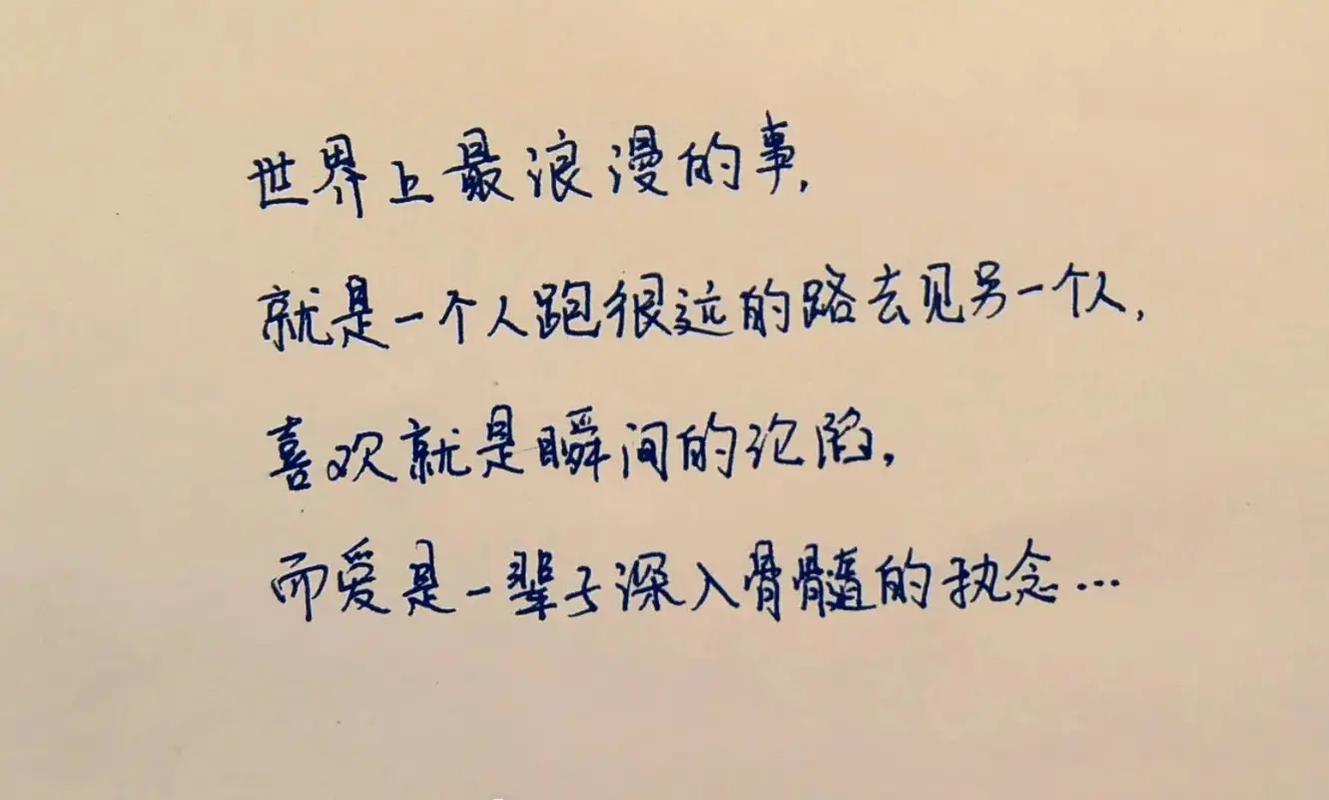 世界上最浪漫的事,
就是一个人跑很远的路去见另一个人,
喜欢就是瞬间的沦陷,
而爱是一辈子深入骨髓的执念…